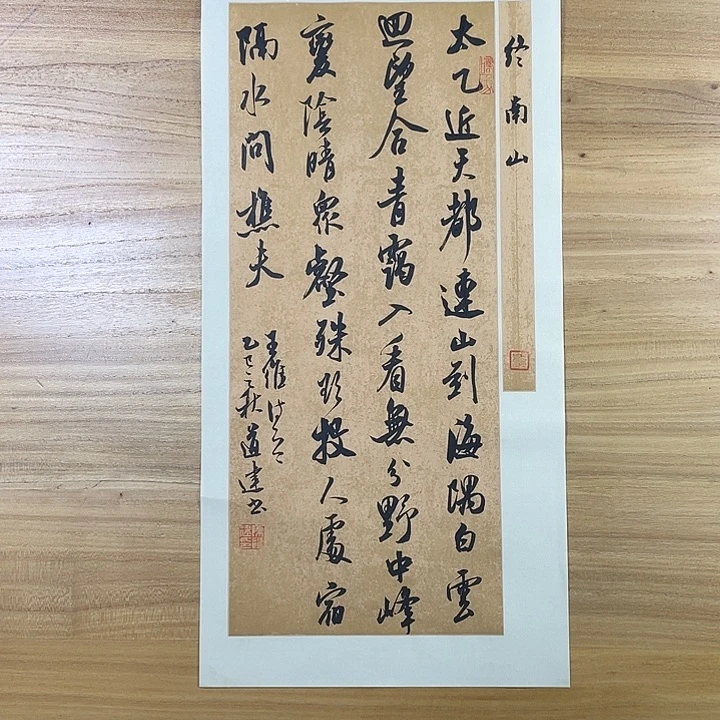 終南山
太乙近天都連山到海隅白雲
迴望合青靄入看無分野中峰
變陰晴眾壑殊欲投人處宿
隔水問樵夫
王維诗
乙巳之秋道建书